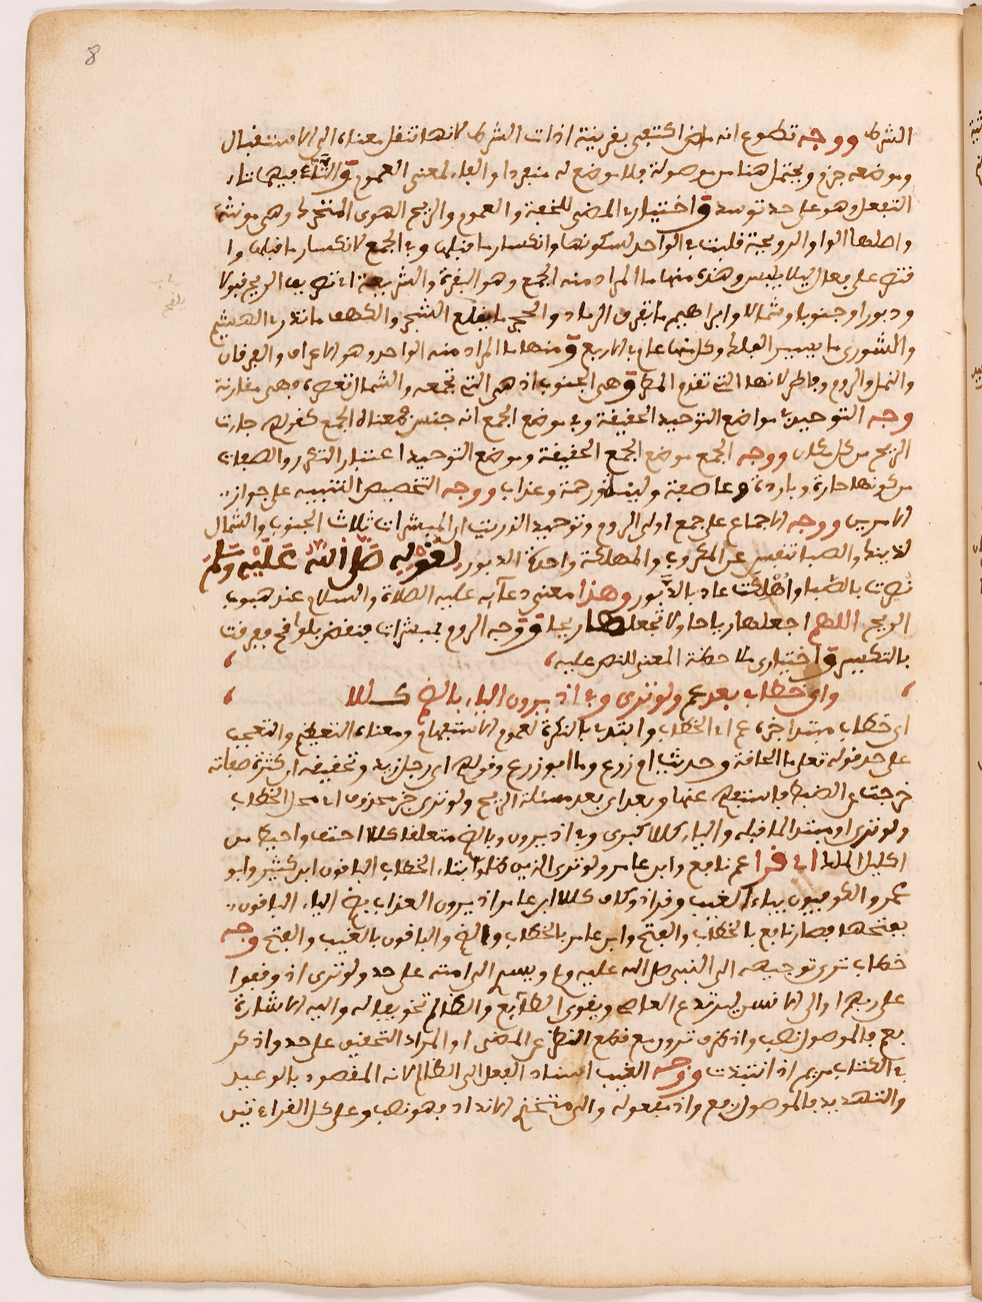 8
الشرط ووجه تطوع انه ماض اكتفى بقرينة اداة الشرط لانها تنقل معناه الى الاستقبال
وموضعه جزم ويحتمل هنا من موصولة فلا موضع له منفردا والفاء لمعنى العموم والتاء فيهما تاء
التفعل وهو على حد توسد واختياري المضي للخفة والعموم والريح الهوى المتحرك وهي مونثة
واصلها الواو الرويحة قلبت في الواحد لسكونها وانكسار ما قبلها وفي الجمع لانكسار ما قبلها وا
ودبورا وجنوبا وشمالا وابراهيم ما تفرق الرماد والحجر ما يقلع الشجر والكهف ما تذر الهشيم
والشورى ما يسير الفلك وكل منها عام في الاربع ومنها ما المراد منه الواحد وهو الاعراف والفرقان
والنمل والروم وفاطر لانها التي تقدم المطر وهي الجنوب اذ هي التي تجمعه والشمال تعصره وهي مقارنة
وجه التوحيد في مواضع التوحيد الحقيقة وفي موضع الجمع انه جنس فمعناه الجمع كقولهم جاءت
الريح من كل مكان ووجه الجمع موضع الجمع الحقيقة وموضع التوحيد اعتبار التكرر والصفات
من كونها حارة وباردة وعاصفة ولينة ورحمة وعذاب ووجه التخصيص التنبيه على جواز
الامرين ووجه الاجماع على جمع اولى الروم وتوحيد الذريت ان المبشرات ثلاث الجنوب والشمال
لانها والصبا تنفس عن المكروب والمهلكة واحدة الدبور لقوله صلى الله عليه وسلم
نصرت بالصبا واهلكت عاد بالدبور وهذا معنى دعآيه عليه الصلاة والسلام عند هبوب
الريح اللهم اجعلها رياحا ولا تجعلها ريحا ووجه الروم بمبشرات فنقض بلواقح وفرقت
بالتكسير واختياري ملاحظة المعنى للنص عليه
واي خطاب بعد عم ولو ترى وفي اذ يرون الياء بالضم كللا
اي خطاب مبتدا خبره عم اي الخطاب وابتدى بالنكرة لعموم الاستفهام ومعناه التعظيم والتعجب
على حد قوله تعلى ما الحاقة وحديث ام زرع وما ابو زرع وقولهم اي رجل زيد وتحقيقه ان كثرة صفاته
خرجت عن الضبط فاستفهم عنها وبعد اي بعد مسئلة الريح ولو ترى خبر محذوف اي محل الخطاب
ولو ترى او مبتدا لما قبله والياء كللا كبرى وفي اذ يرون وبالضم متعلقا كللا احتف واحيط من
اكليل الملك اي قرا عم نافع وابن عامر ولو ترى الذين ظلموا بتاء الخطاب الباقون ابن كثير وابو
عمرو والكوفيون بياء الغيب وقرا ذو كاف كللا ابن عامر اذ يرون العذاب بضم الياء الباقون
بفتحها فصار نافع بالخطاب والفتح وابن عامر بالخطاب والضم والباقون بالغيب والفتح وجه
خطاب ترى توجيهه الى النبي صلى الله عليه وسلم ويسير الى امته على حد ولو ترى اذ وقفوا
على ربهم او الى الانسن ليرتدع العاصي ويقوى الطايع والظالم تخويفا له واليه الاشارة
بعم فالموصول نصب واذ ظرف ترى مع قطع النظر عن المضى او المراد التحقيق على حد واذكر
في الكتاب مريم اذ انتبذت ووجه الغيب اسناد الفعل الى الظالم لانه المقصود بالوعيد
والتهديد فالموصول رفع واذ مفعوله والى متخذ الانداد فهو نصب وعلى كل القراءتين